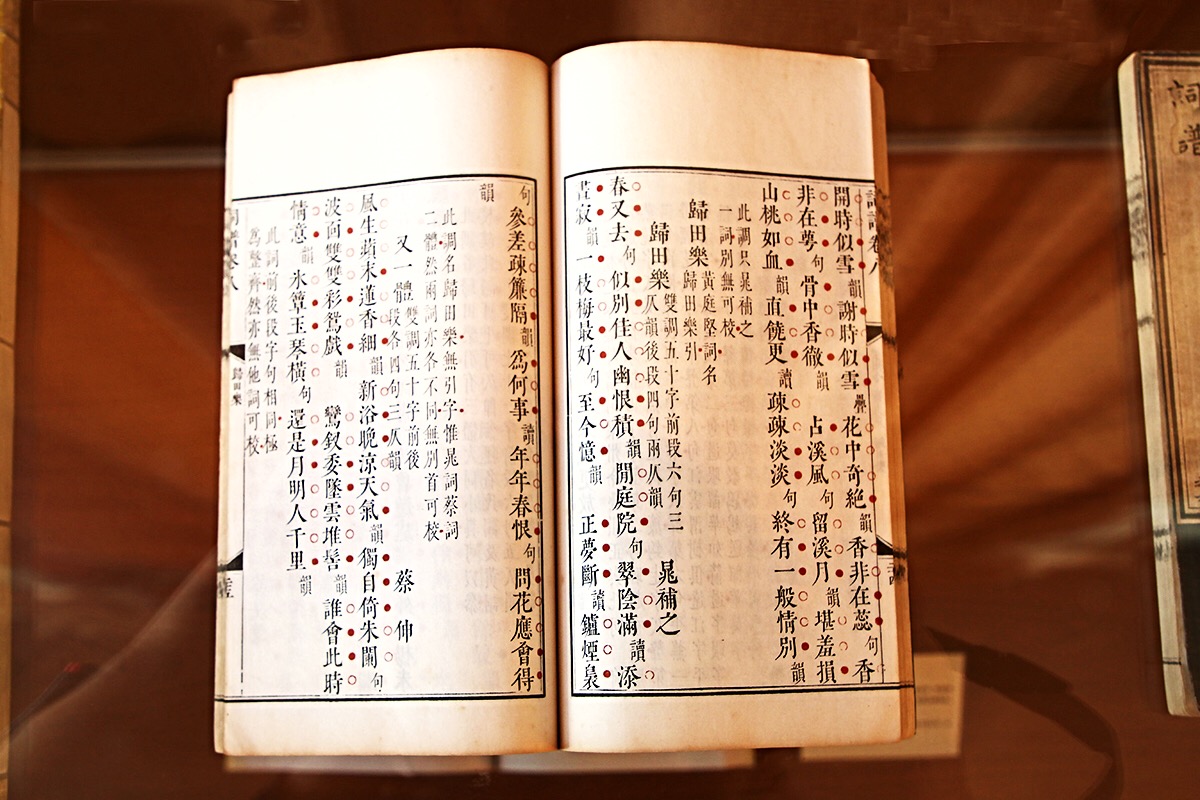 開時似雪韻謝時似雪疊花中奇絶韻香非在蕊句香
非在萼句骨中香徹韻占溪風句留溪月韻堪羞損
山桃如血韻直饒更讀疎疎淡淡句終有一般情別韻
此調只晁補之
一詞別無可校
歸田樂
黃庭堅詞名
歸田樂引
歸田樂
雙調五十字前段六句三
仄韻後段四句兩仄韻
晁補之
春又去句似別佳人幽恨積韻閒庭院句翠陰滿讀添
晝寂韻一枝梅最好句至今憶韻正夢斷讀鑪煙裊
句參差疎簾隔韻爲何事讀年年春恨句問花應會得
韻
此調名歸田樂無引字惟晁詞蔡詞
二體然兩詞亦各不同無別首可校
又一體
雙調五十字前後
段各四句三仄韻
蔡伸
風生蘋末蓮香細韻新浴晚涼天氣韻獨自倚朱闌句
波面雙雙彩鴛戲韻鸞釵委墜雲堆髻韻誰會此時
情意韻氷簟玉琴橫句還是月明人千里韻
此詞前後段字句相同極
爲整齊然亦無他詞可校
歸田樂
詞譜